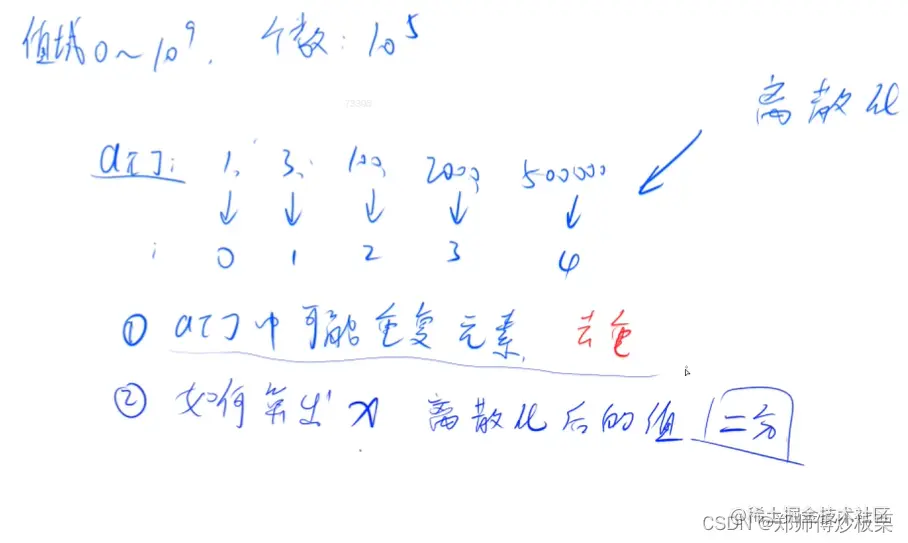 值域0~10^9. 个数: 10^5
离散化
a[]: 1, 3, 100, 2000, 500000
i 0 1 2 3 4
① a[]中可能重复元素 去重
② 如何算出 x 离散化后的值 二分
@稀土掘金技术社区
CSDN @郑师傅炒板栗